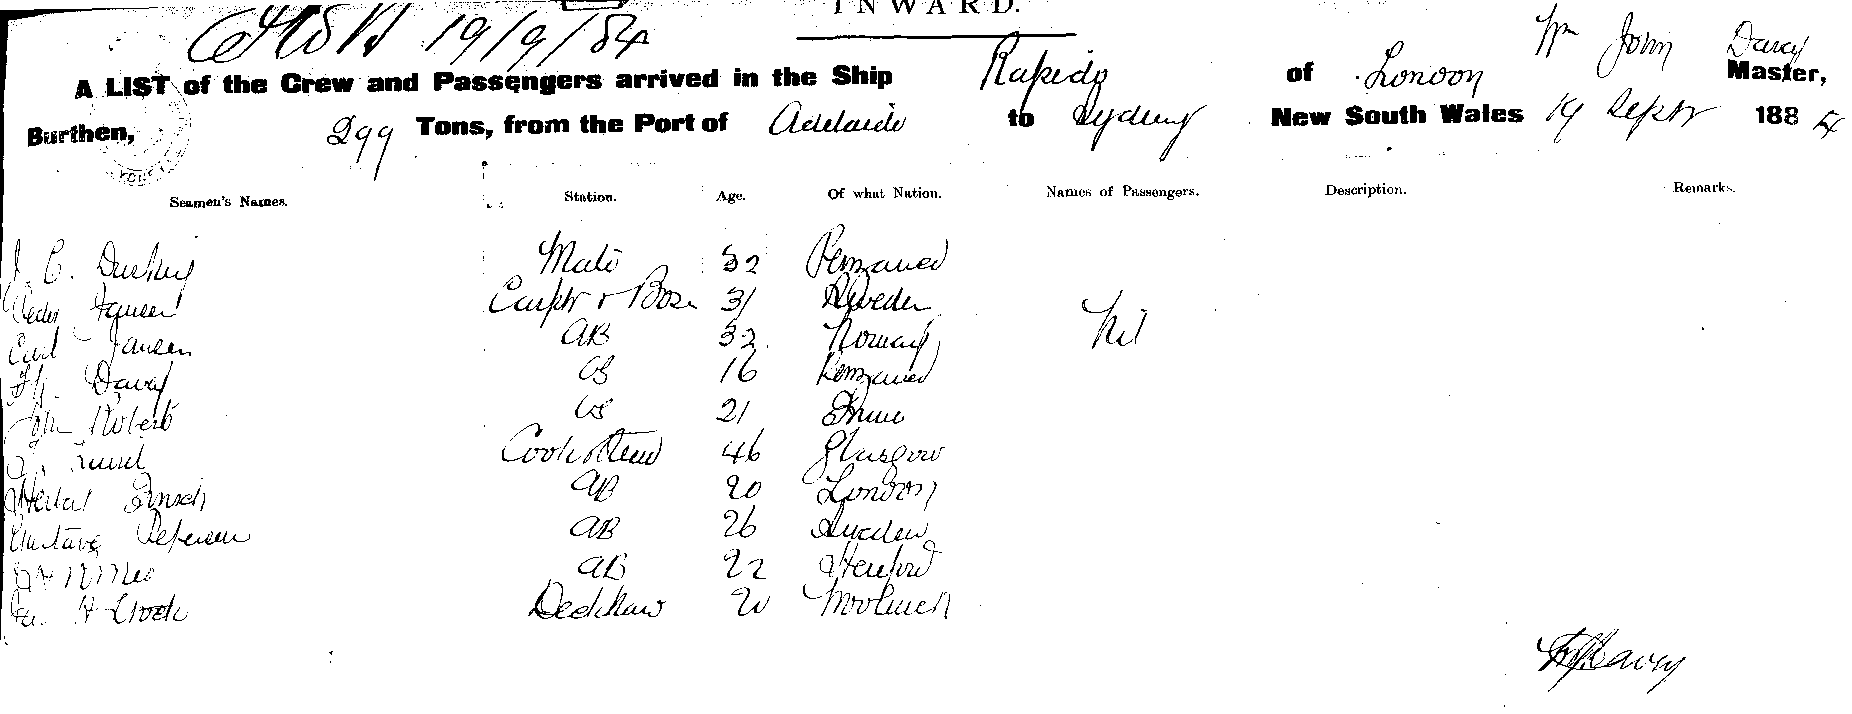 INWARD.
19/9/84
A LIST of the Crew and Passengers arrived in the Ship Rapido of London Wm John Davey Master,
Burthen, 299 Tons, from the Port of Adelaide to Sydney New South Wales 19 Septr 1884
Seamen's Names. Station. Age. Of what Nation. Names of Passengers. Description. Remarks.
J. C. Mate 32 Penzance
Peder Jansen Carptr & Bosn 31 Sweden
Carl Jansen AB 32 Norway Nil
Davey OS 16 Penzance
John Roberts OS 21
Lund Cook & Stewd 46 Glasgow
AB 20 London
Gustave Petersen AB 26 Sweden
AB 22 Hereford
H Crook Deckhaw 20 Woolwich
Wm J Davey